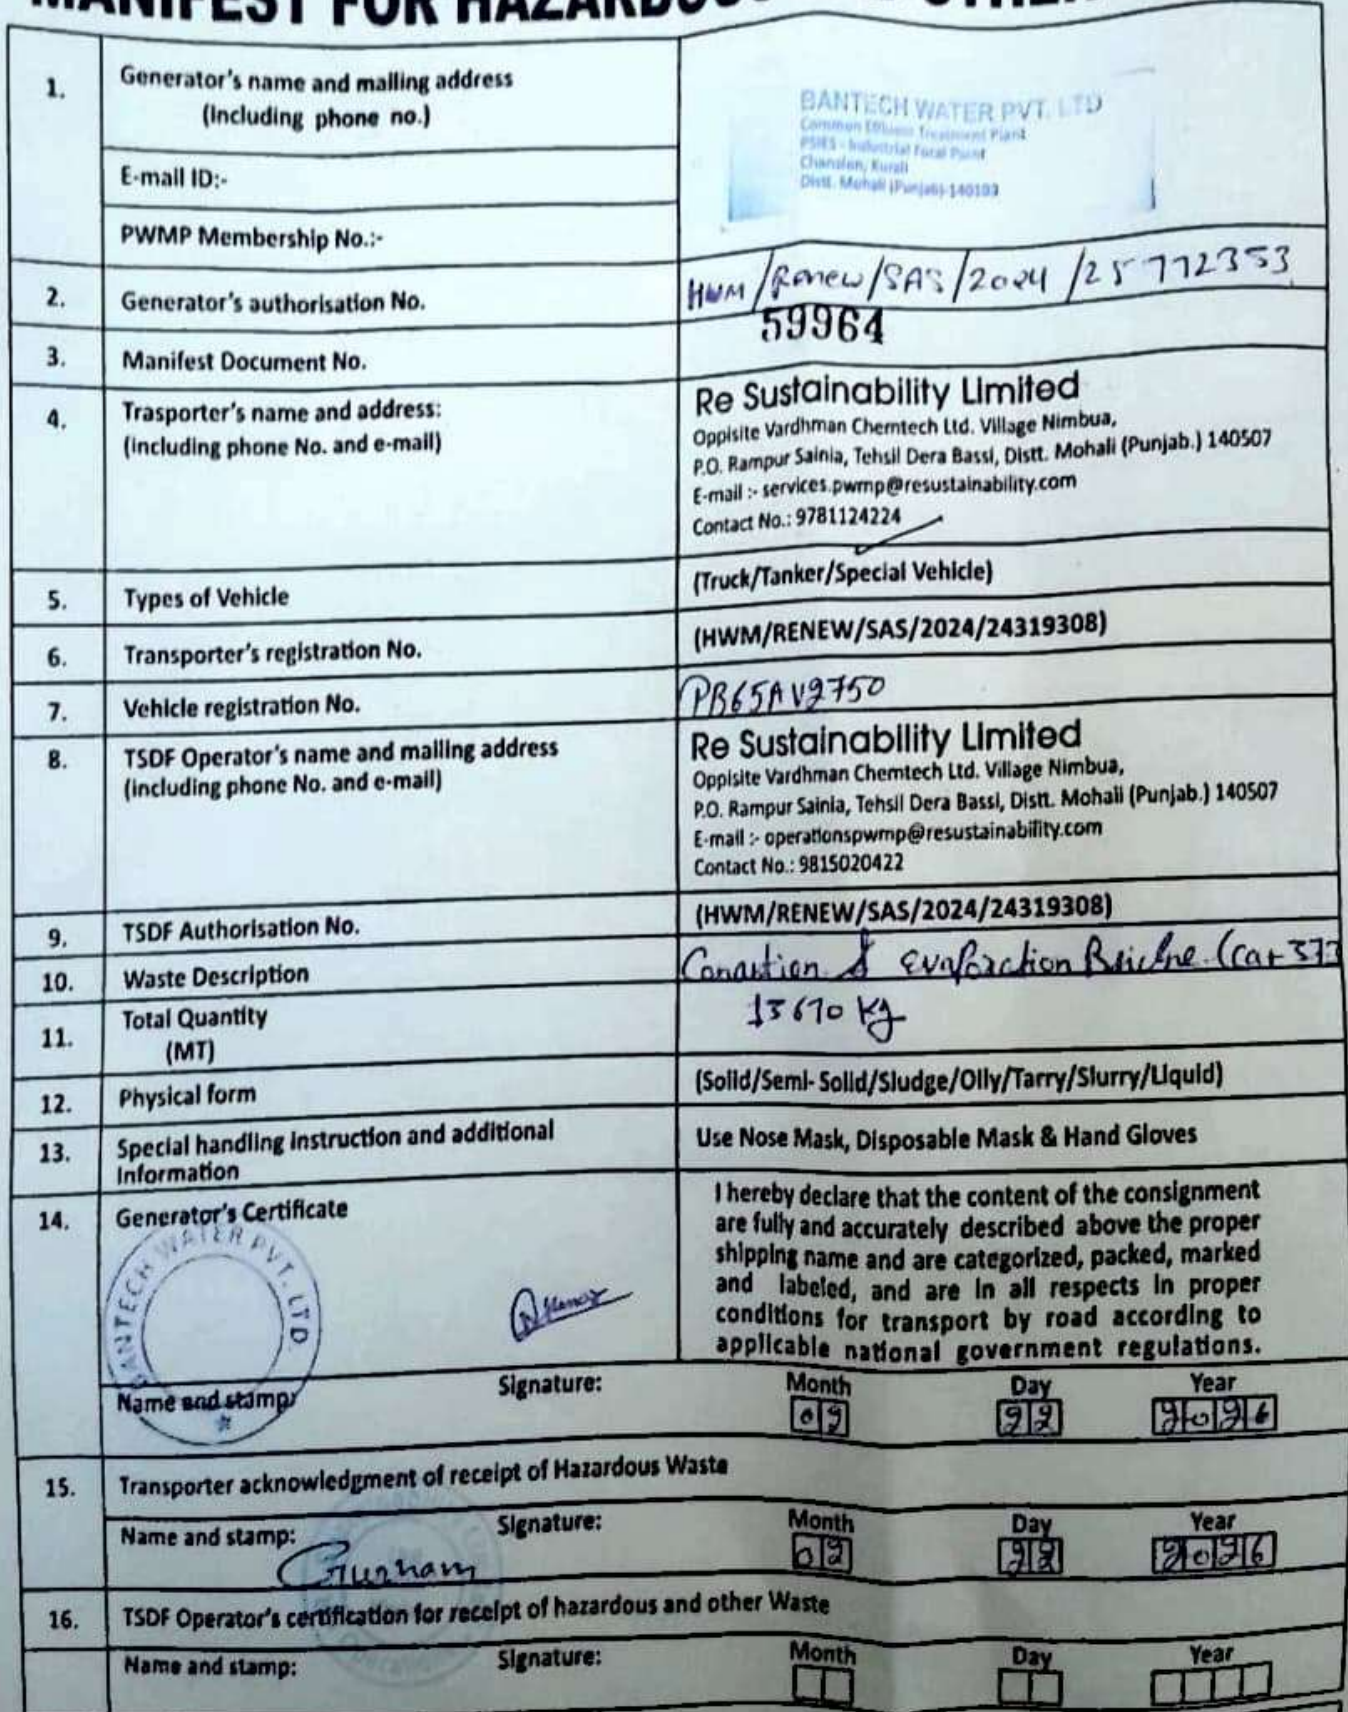 MANIFEST FOR HAZARDOUS
1. Generator's name and mailing address
(Including phone no.)
BANTECH WATER PVT. LTD
Common Effluent Treatment Plant
PSIES - Industrial Focal Point
Chanalon, Kurali
Distt. Mohali (Punjab)-140103
E-mail ID:-
PWMP Membership No.:-
2. Generator's authorisation No. HWM/Renew/SAS/2024/25772353
3. Manifest Document No. 59964
4. Trasporter's name and address:
(including phone No. and e-mail)
Re Sustainability Limited
Oppisite Vardhman Chemtech Ltd. Village Nimbua,
P.O. Rampur Sainia, Tehsil Dera Bassi, Distt. Mohali (Punjab.) 140507
E-mail :- services.pwmp@resustainability.com
Contact No.: 9781124224
5. Types of Vehicle (Truck/Tanker/Special Vehicle)
6. Transporter's registration No. (HWM/RENEW/SAS/2024/24319308)
7. Vehicle registration No. PB65AV9750
8. TSDF Operator's name and mailing address
(including phone No. and e-mail)
Re Sustainability Limited
Oppisite Vardhman Chemtech Ltd. Village Nimbua,
P.O. Rampur Sainia, Tehsil Dera Bassi, Distt. Mohali (Punjab.) 140507
E-mail :- operationspwmp@resustainability.com
Contact No.: 9815020422
9. TSDF Authorisation No. (HWM/RENEW/SAS/2024/24319308)
10. Waste Description
11. Total Quantity
(MT)
13670 Kg
12. Physical form (Solid/Semi- Solid/Sludge/Oily/Tarry/Slurry/Liquid)
13. Special handling instruction and additional
Information
Use Nose Mask, Disposable Mask & Hand Gloves
14. Generator's Certificate
I hereby declare that the content of the consignment
are fully and accurately described above the proper
shipping name and are categorized, packed, marked
and labeled, and are in all respects in proper
conditions for transport by road according to
applicable national government regulations.
BANTECH WATER PVT. LTD.
Name and stamp: Signature: Month Day Year
02 22 2026
15. Transporter acknowledgment of receipt of Hazardous Waste
Name and stamp: Signature: Month Day Year
Gurnam 02 22 2026
16. TSDF Operator's certification for receipt of hazardous and other Waste
Name and stamp: Signature: Month Day Year